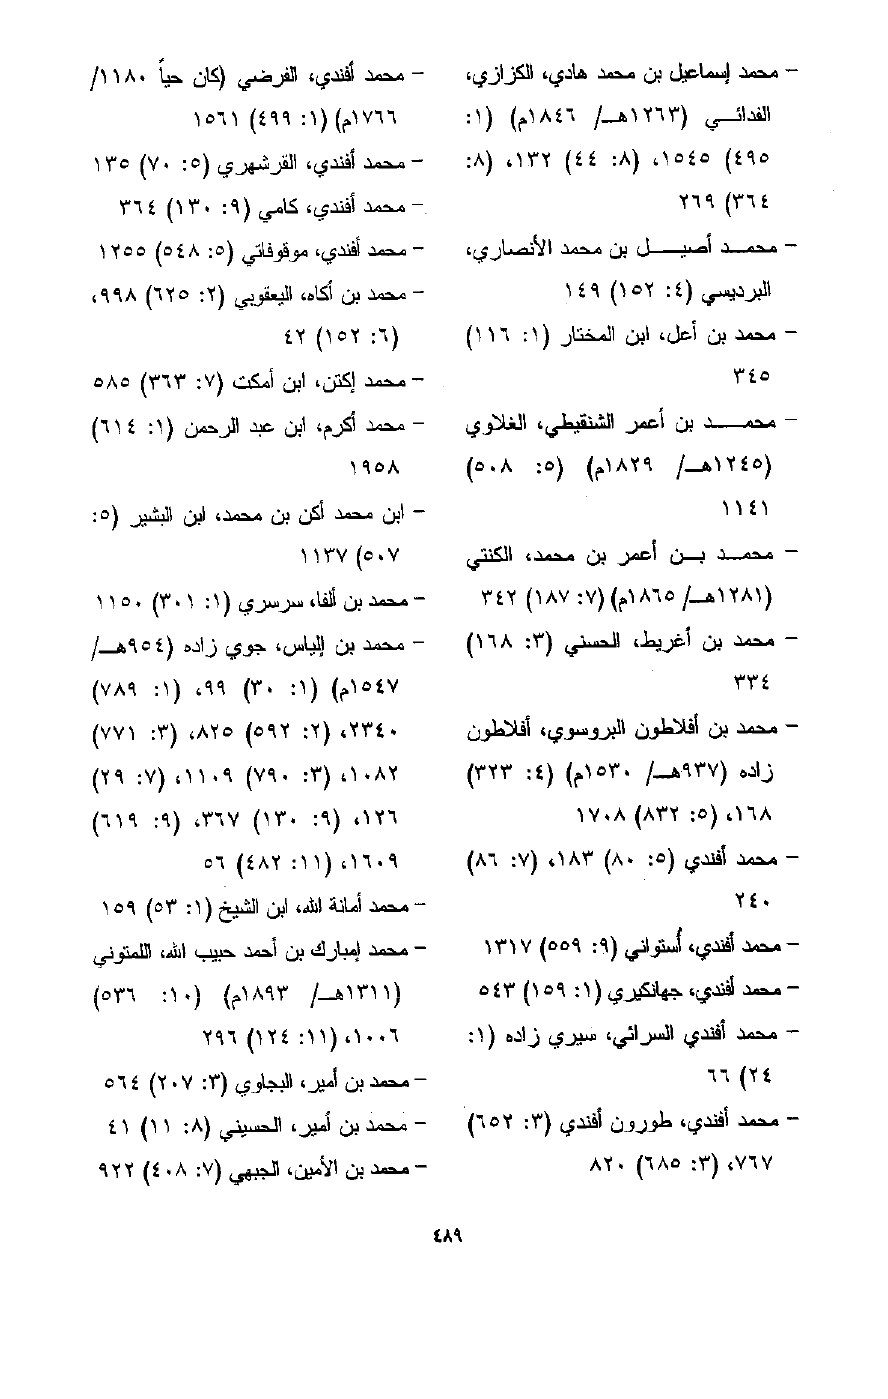 - محمد إسماعيل بن محمد هادي، الكزازي،
الفدائي (١٢٦٣هـ/ ١٨٤٦م) (١:
٤٩٥) ١٥٤٥، (٨: ٤٤) ١٣٢، (٨:
٣٦٤) ٢٦٩
- محمد أصيل بن محمد الأنصاري،
البرديسي (٤: ١٥٢) ١٤٩
- محمد بن أعل، ابن المختار (١: ١١٦)
٣٤٥
- محمد بن أعمر الشنقيطي، الغلاوي
(١٢٤٥هـ/ ١٨٢٩م) (٥: ٥٠٨)
١١٤١
- محمد بن أعمر بن محمد، الكنتي
(١٢٨١هـ/ ١٨٦٥م) (٧: ١٨٧) ٣٤٢
- محمد بن أغريط، الحسني (٣: ١٦٨)
٣٣٤
- محمد بن أفلاطون البروسوي، أفلاطون
زاده (٩٣٧هـ/ ١٥٣٠م) (٤: ٣٢٣)
١٦٨، (٥: ٨٣٢) ١٧٠٨
- محمد أفندي (٥: ٨٠) ١٨٣، (٧: ٨٦)
٢٤٠
- محمد أفندي، أُستواني (٩: ٥٥٩) ١٣١٧
- محمد أفندي، جهانكيري (١: ١٥٩) ٥٤٣
- محمد أفندي السرائي، سيري زاده (١:
٢٤) ٦٦
- محمد أفندي، طورون أفندي (٣: ٦٥٢)
٧٦٧، (٣: ٦٨٥) ٨٢٠
- محمد أفندي، الفرضي (كان حياً ١١٨٠/
١٧٦٦م) (١: ٤٩٩) ١٥٦١
- محمد أفندي، القرشهري (٥: ٧٠) ١٣٥
- محمد أفندي، كامي (٩: ١٣٠) ٣٦٤
- محمد أفندي، موقوفاتي (٥: ٥٤٨) ١٢٥٥
- محمد بن أكاه، اليعقوبي (٢: ٦٢٥) ٩٩٨،
(٦: ١٥٢) ٤٢
- محمد إكتن، ابن أمكت (٧: ٣٦٣) ٥٨٥
- محمد أكرم، ابن عبد الرحمن (١: ٦١٤)
١٩٥٨
- ابن محمد أكن بن محمد، ابن البشير (٥:
٥٠٧) ١١٣٧
- محمد بن ألفا، سرسري (١: ٣٠١) ١١٥٠
- محمد بن إلياس، جوي زاده (٩٥٤هـ/
١٥٤٧م) (١: ٣٠) ٩٩، (١: ٧٨٩)
٢٣٤٠، (٢: ٥٩٢) ٨٢٥، (٣: ٧٧١)
١٠٨٢، (٣: ٧٩٠) ١١٠٩، (٧: ٢٩)
١٢٦، (٩: ١٣٠) ٣٦٧، (٩: ٦١٩)
١٦٠٩، (١١: ٤٨٢) ٥٦
- محمد أمانة الله، ابن الشيخ (١: ٥٣) ١٥٩
- محمد إمبارك بن أحمد حبيب الله، اللمتوني
(١٣١١هـ/ ١٨٩٣م) (١٠: ٥٣٦)
١٠٠٦، (١١: ١٢٤) ٢٩٦
- محمد بن أمير، البجاوي (٣: ٢٠٧) ٥٦٤
- محمد بن أمير، الحسيني (٨: ١١) ٤١
- محمد بن الأمين، الجبهي (٧: ٤٠٨) ٩٢٢
٤٨٩